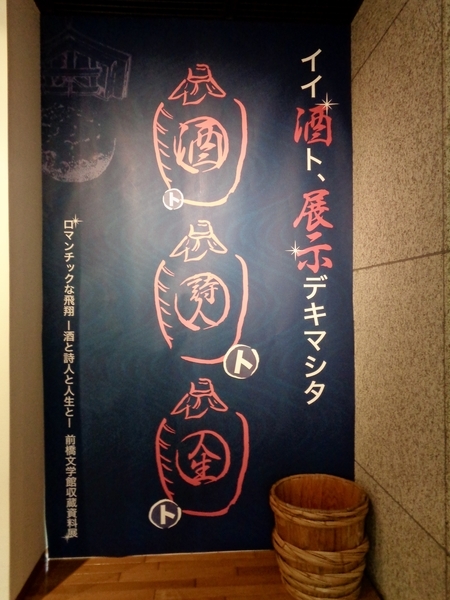 イイ酒ト、展示デキマシタ
酒
ト
詩人
ト
人生
ト
ロマンチックな飛翔 ー酒と詩人と人生とー 前橋文学館収蔵資料展